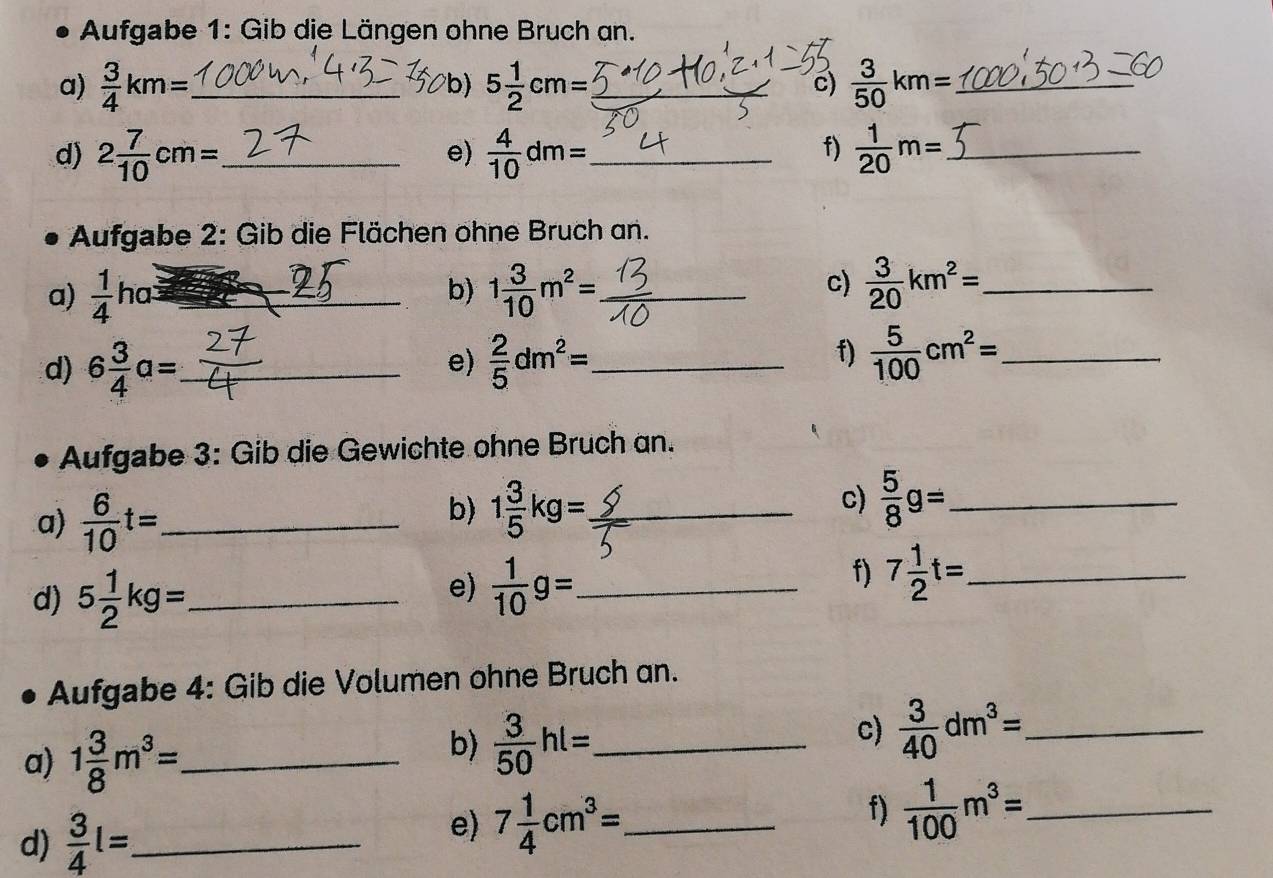 • Aufgabe 1: Gib die Längen ohne Bruch an.
a) 3/4 km = 1000m : 4·3 = 750 b) 5 1/2 cm = 5·10 + 10 : 2·1 = 55 c) 3/50 km = 1000 : 50·3 = 60
50 5
d) 2 7/10 cm = 27 e) 4/10 dm = 4 f) 1/20 m = 5
• Aufgabe 2: Gib die Flächen ohne Bruch an.
a) 1/4 ha 25 b) 1 3/10 m² = 13/10 c) 3/20 km² =
d) 6 3/4 a = 27/4 e) 2/5 dm² = f) 5/100 cm² =
• Aufgabe 3: Gib die Gewichte ohne Bruch an.
a) 6/10 t = b) 1 3/5 kg = 8/5 c) 5/8 g =
d) 5 1/2 kg = e) 1/10 g = f) 7 1/2 t =
• Aufgabe 4: Gib die Volumen ohne Bruch an.
a) 1 3/8 m³ = b) 3/50 hl = c) 3/40 dm³ =
d) 3/4 l = e) 7 1/4 cm³ = f) 1/100 m³ =